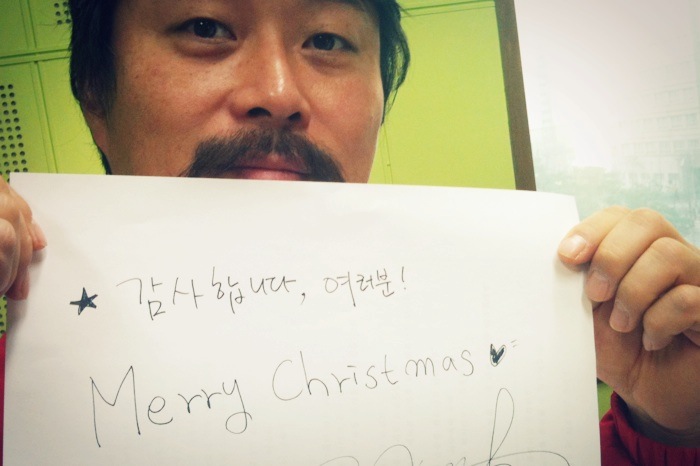 ★ 감사합니다, 여러분!
Merry Christmas ♥